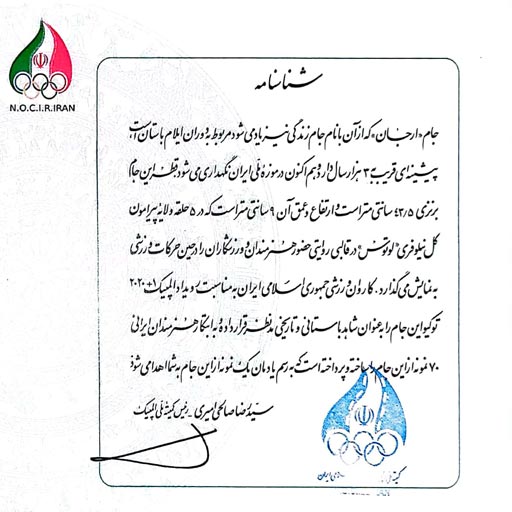 N.O.C.I.R.IRAN
شناسنامه
جام «ارجان» که از آن با نام جام زندگی نیز یاد می شود مربوط به دوران ایلام باستان است
پیشینه ای قریب به ۳ هزار سال دارد هم اکنون در موزه ملی ایران نگهداری می شود قطر این جام
برنزی ۴۳/۵ سانتی متر است و ارتفاع و عمق آن ۹ سانتی متر است که در ۵ حلقه و لایه پیرامون
گل نیلوفری "لوتوس" در قالبی روایتی حضور هنرمندان و ورزشکاران را در عین حرکات ورزشی
به نمایش می گذارد. کاروان ورزشی جمهوری اسلامی ایران به مناسبت رویداد المپیک ۱+۲۰۲۰
توکیو این جام را به عنوان شاهد باستانی و تاریخی مدنظر قرار داده و به ابتکار هنرمندان ایرانی
۷۰ نمونه از این جام را ساخته و پرداخته است که به رسم یادمان یک نمونه از این جام به شما اهدا می شود
سید رضا صالحی امیری - رئیس کمیته ملی المپیک
کمیته ملی
اسلامی ایران